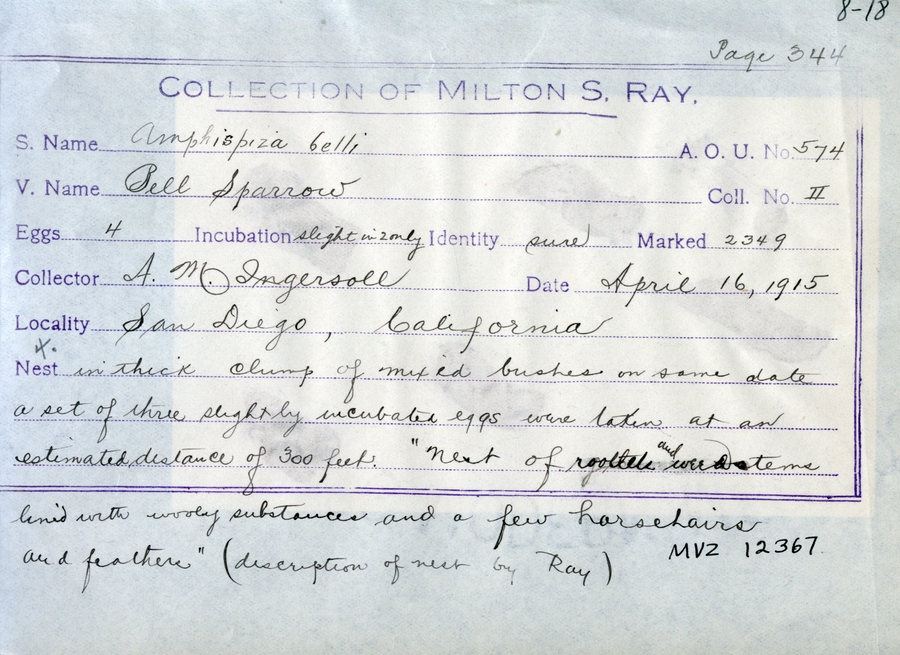 8-18
Page 344
COLLECTION OF MILTON S. RAY.
S. Name Amphispiza belli A. O. U. No. 574
V. Name Bell Sparrow Coll. No. II
Eggs 4 Incubation slight in 2 only Identity sure Marked 2349
Collector A. M. Ingersoll Date April 16, 1915
Locality San Diego, California
x.
Nest in thick clump of mixed bushes on same date
a set of three slightly incubated eggs were taken at an
estimated distance of 300 feet. "Nest of rootlets and weed stems
lined with wooly substances and a few horsehairs
and feathers" (description of nest by Ray)
MVZ 12367.